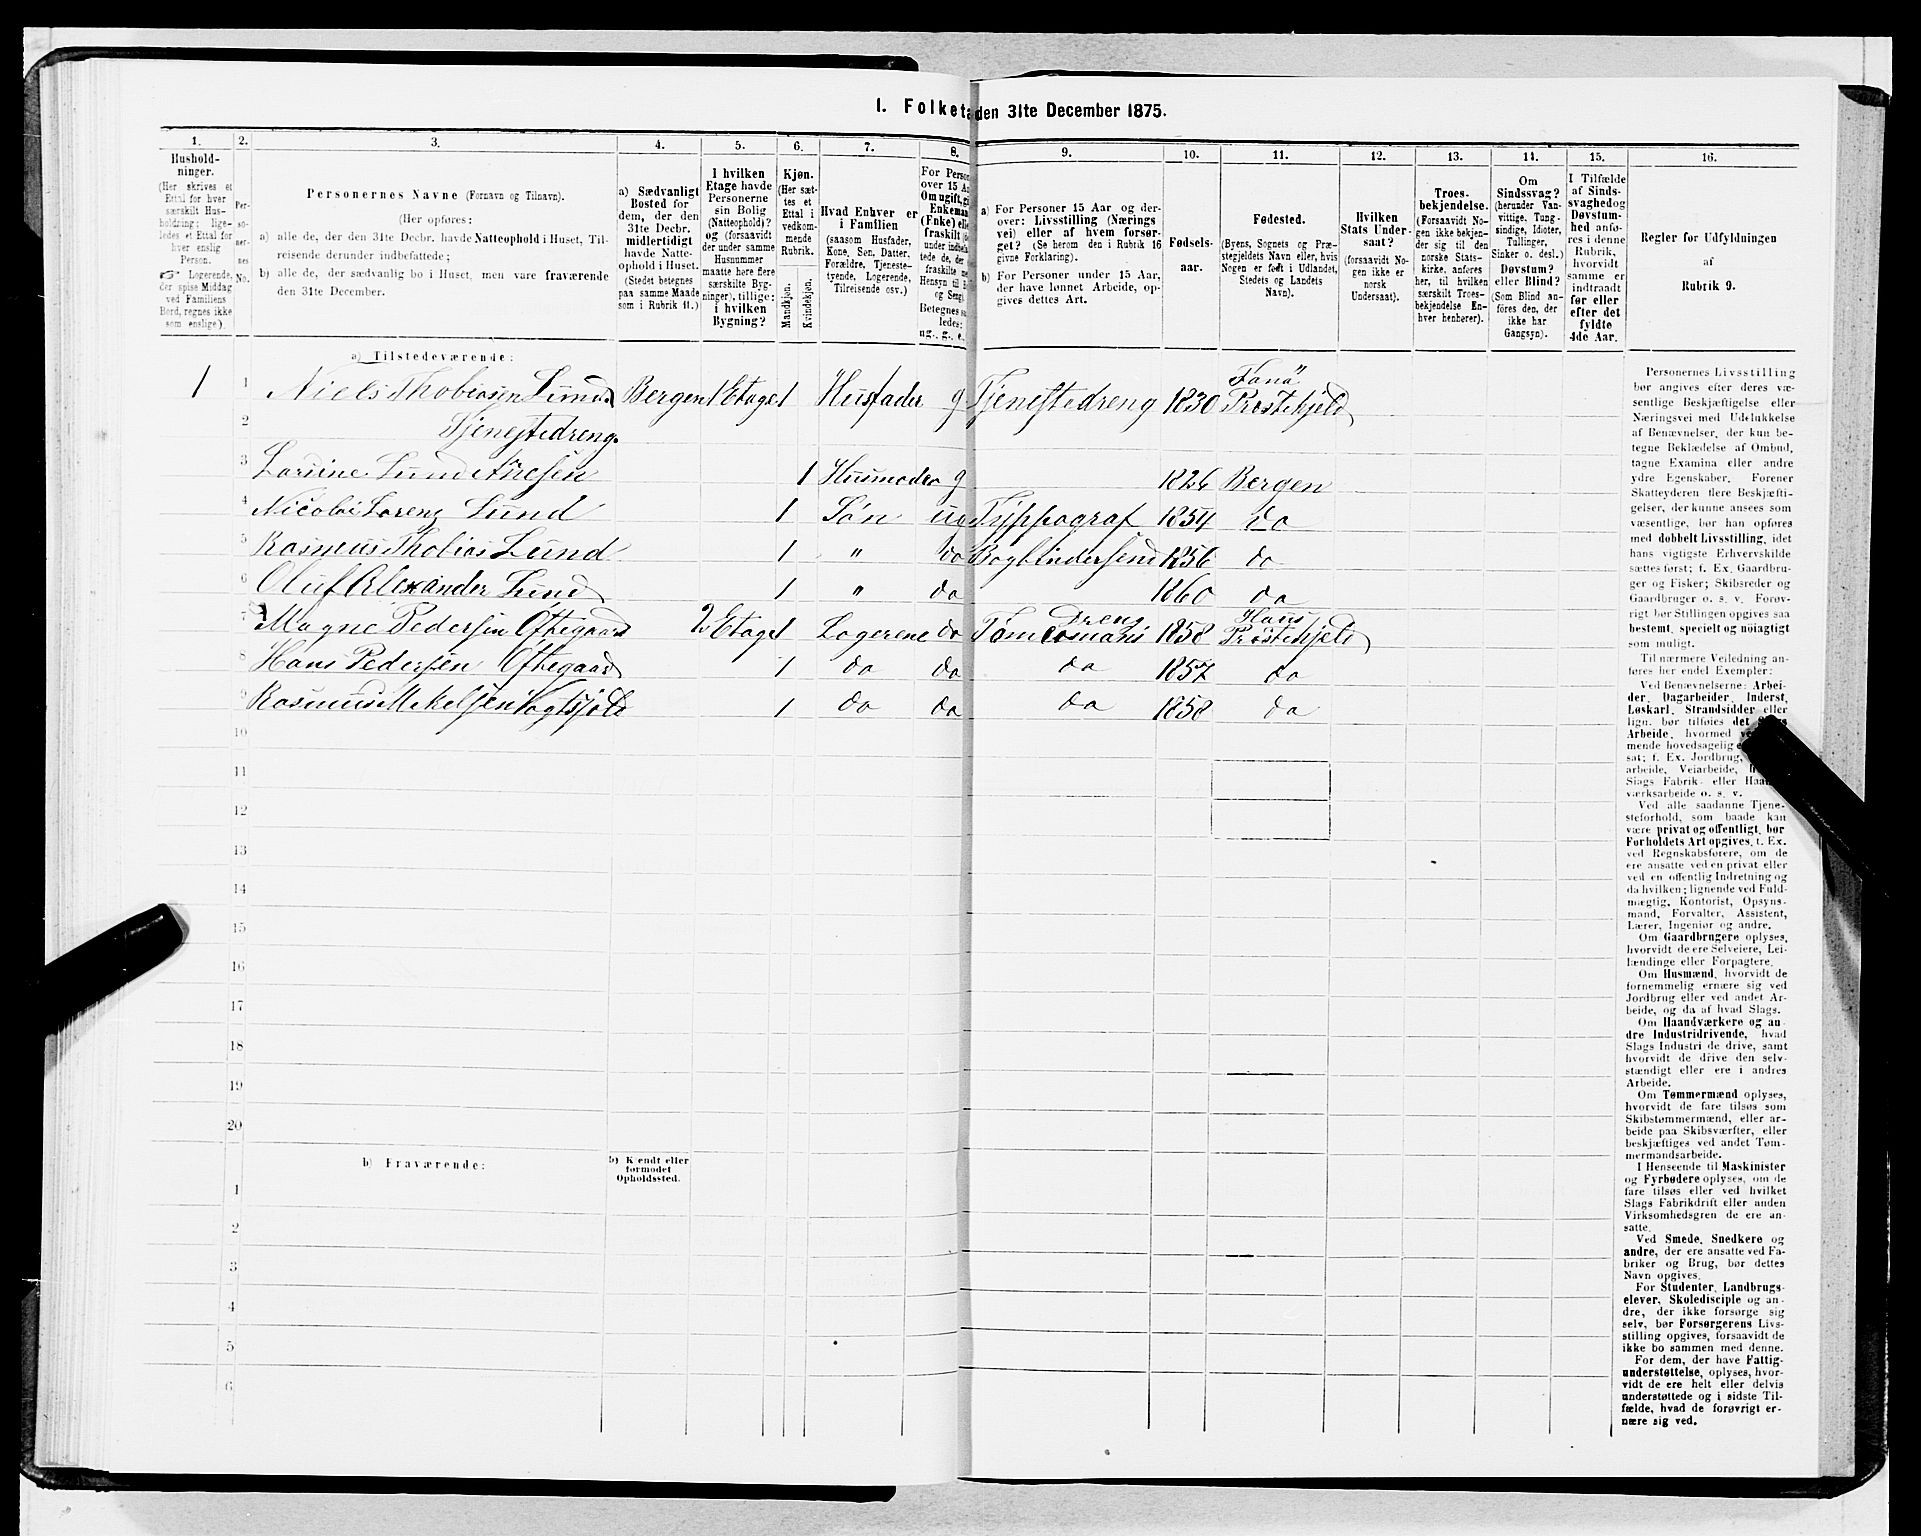 I. Folketæ den 31te December 1875.
1. 2. 3. 4. 5. 6. 7. 8. 9. 10. 11. 12. 13. 14. 15. 16.
Hushold-
ninger.
(Her skrives et
Ettal for hver
særskilt Hus-
holdning; lige-
ledes et Ettal for
hver enslig
Person.
☞ Logerende,
der spise Middag
ved Familiens
Bord, regnes ikke
som enslige).
Per-
so-
ner-
nes
No.
Personernes Navne (Fornavn og Tilnavn).
(Her opføres:
a) alle de, der den 31te Decbr. havde Natteophold i Huset, Til-
reisende derunder indbefattede;
b) alle de, der sædvanlig bo i Huset, men vare fraværende
den 31te December.
a) Sædvanligt
Bosted for
dem, der den
31te Decbr.
midlertidigt
havde Natte-
ophold i Huset.
(Stedet betegnes
paa samme Maade
som i Rubrik 11.)
I hvilken
Etage havde
Personerne
sin Bolig
(Natteophold)?
og (forsaavidt
der under samme
Husnummer
maatte here flere
særskilte Byg-
ninger), tillige:
i hvilken
Bygning?
Kjøn.
(Her sæt-
tes et
Ettal i
vedkom-
mende
Rubrik.
Mandkjøn.
Kvindekjøn.
Hvad Enhver er
i Familien
(saasom Husfader,
Kone, Søn, Datter,
Forældre, Tjeneste-
tyende, Logerende,
Tilreisende osv.)
For Person
over 15 Aa
Om ugift, gi
Enkeman
(Enke) elle
fraskilt
under indbe
tede de, der
fraskilte
Hensyn til B
og Seng).
Betegnes
ledes:
ug., g., e.
a) For Personer 15 Aar og der-
over: Livsstilling (Nærings
vei) eller af hvem forsør-
get? (Se herom den i Rubrik 16
givne Forklaring).
b) For Personer under 15 Aar,
der have lønnet Arbeide, op-
gives dettes Art.
Fødsels-
aar.
Fødested.
(Byens, Sognets og Præ-
stegjeldets Navn eller, hvis
Nogen er født i Udlandet,
Stedets og Landets
Navn).
Hvilken
Stats Under-
saat?
(forsaavidt No-
gen ikke er
norsk
Undersaat).
Troes-
bekjendelse.
(Forsaavidt No-
gen ikke bekjen-
der sig til den
norske Stats-
kirke, anføres
her, til hvilken
særskilt Troes-
bekjendelse En-
hver henhører).
Om
Sindssvag?
(herunder Van-
vittige, Tung-
sindige, Idioter,
Tullinger,
Sinker o. desl.)
Døvstum?
eller Blind?
(Som Blind an-
føres den, der
ikke har
Gangsyn).
I Tilfælde
af Sinds-
svaghed og
Døvstum-
hed anfø-
res i denne
Rubrik,
hvorvidt
samme er
indtraadt
før eller
efter det
fyldte
4de Aar.
Regler for Udfyldningen
af
Rubrik 9.
a) Tilstedeværende:
1 1 Niels Thobiasen Lund Bergen 1 Etage 1 Husfader g Tjenestedreng 1830 Fanø Prestekjeld
2 Tjenestedreng.
3 Lovine Lund Arnesen 1 Husmoder g 1826 Bergen
4 Nicolai Lorenz Lund 1 Søn ug Typpograf 1854 do
5 Rasmus Thobias Lund 1 " do Bogbindersvend 1856 do
6 Oluf Alexander Lund 1 " do 1860 do
7 Magne Pedersen Oftegaard 2 Etage 1 Logerene do Tømermans Dreng 1858 Haus Prestekjeld
8 Hans Pedersen Oftegaard 1 do do do 1857 do
9 Rasmus Mikelsen 1 do do do 1858 do
10
11
12
13
14
15
16
17
18
19
20
b) Fraværende:
b) Kjendt eller
formodet
Opholdssted.
1
2
3
4
5
6
Personernes Livsstilling
bør angives efter deres væ-
sentlige Beskjæftigelse eller
Næringsvei med Udelukkelse
af Benævnelser, der kun be-
tegne Beklædelse af Ombud,
tagne Examina eller andre
ydre Egenskaber. Forener
Skatteyderen flere Beskjæfti-
gelser, der kunne ansees som
væsentlige, bør han opføres
med dobbelt Livsstilling, idet
hans vigtigste Erhvervskilde
sættes først; f. Ex. Gaardbru-
ger og Fisker; Skibsreder og
Gaardbruger o. s. v. Forøv-
rigt bør Stillingen opgives saa
bestemt, specielt og nøiagtigt
som muligt.
Til nærmere Veiledning an-
føres her endel Exempler:
Ved Benævnelserne: Arbei-
der, Dagarbeider, Inderst,
Løskarl, Strandsidder eller
lign. bør tilføies det Slags
Arbeide, hvormed ved-
mende hovedsagelig er
sat; f. Ex. Jordbrug,
arbeide, Veiarbeide,
Slags Fabrik- eller Haand-
værksarbeide o. s. v.
Ved alle saadanne Tjene-
steforhold, som baade kan
være privat og offentligt, bør
Forholdets Art opgives, f. Ex.
ved Regnskabsførere, om de
ere ansatte ved en privat eller
ved en offentlig Indretning og
da hvilken; lignende ved Fuld-
mægtig, Kontorist, Opsyns-
mand, Forvalter, Assistent,
Lærer, Ingeniør og andre.
Om Gaardbrugere oplyses,
hvorvidt de ere Selveiere, Lei-
lændinge eller Forpagtere.
Om Husmænd, hvorvidt de
fornemmelig ernære sig ved
Jordbrug eller ved andet Ar-
beide, og da af hvad Slags.
Om Haandværkere og an-
dre Industridrivende, hvad
Slags Industri de drive, samt
hvorvidt de drive den selv-
stændigt eller ere i andres
Arbeide.
Om Tømmermænd oplyses,
hvorvidt de fare tilsøs som
Skibstømmermænd, eller ar-
beide paa Skibsværfter, eller
beskjæftiges ved andet Tøm-
mermandsarbeide.
I Henseende til Maskinister
og Fyrbødere oplyses, om de
fare tilsøs eller ved hvilket
Slags Fabrikdrift eller anden
Virksomhedsgren de ere an-
satte.
Ved Smede, Snedkere og
andre, der ere ansatte ved Fa-
briker og Brug, bør dettes
Navn opgives.
For Studenter, Landbrugs-
elever, Skoledisciple og an-
dre, der ikke forsørge sig
selv, bør Forsørgerens Livs-
stilling opgives, forsaavidt de
ikke bo sammen med denne.
For dem, der have Fattig-
understøttelse, oplyses, hvor-
vidt de ere helt eller delvis
understøttede og i sidste Til-
fælde, hvad de forøvrigt er-
nære sig ved.